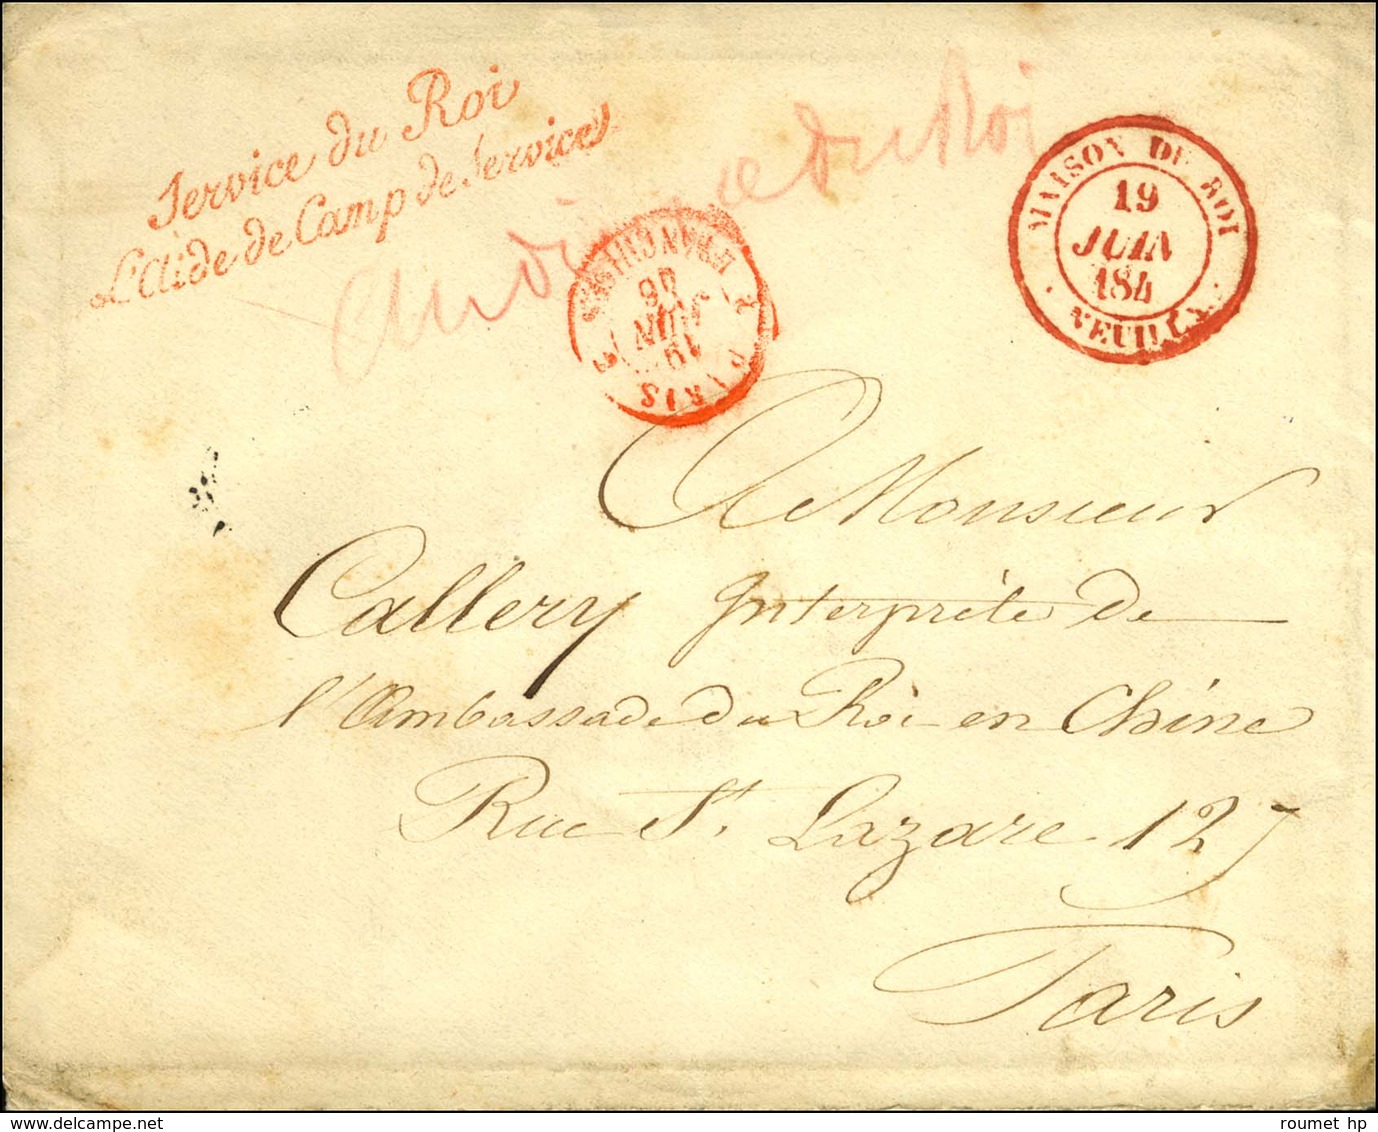 Service du Roi
L'aide de Camp de Services
du Roi
MAISON DU ROI
19
JUIN
184
NEUILLY
FRANCHISES
46
JUIN
19
PARIS
A Monsieur
Callery Interprète de
l'Ambassade du Roi en Chine
Rue St. Lazare 127
Paris
roumet hp